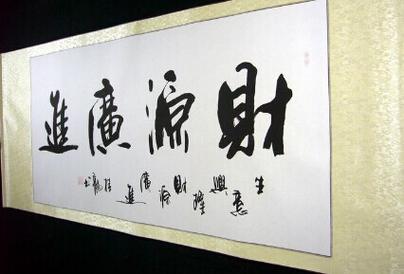 財源廣進
生意興隆財源廣進